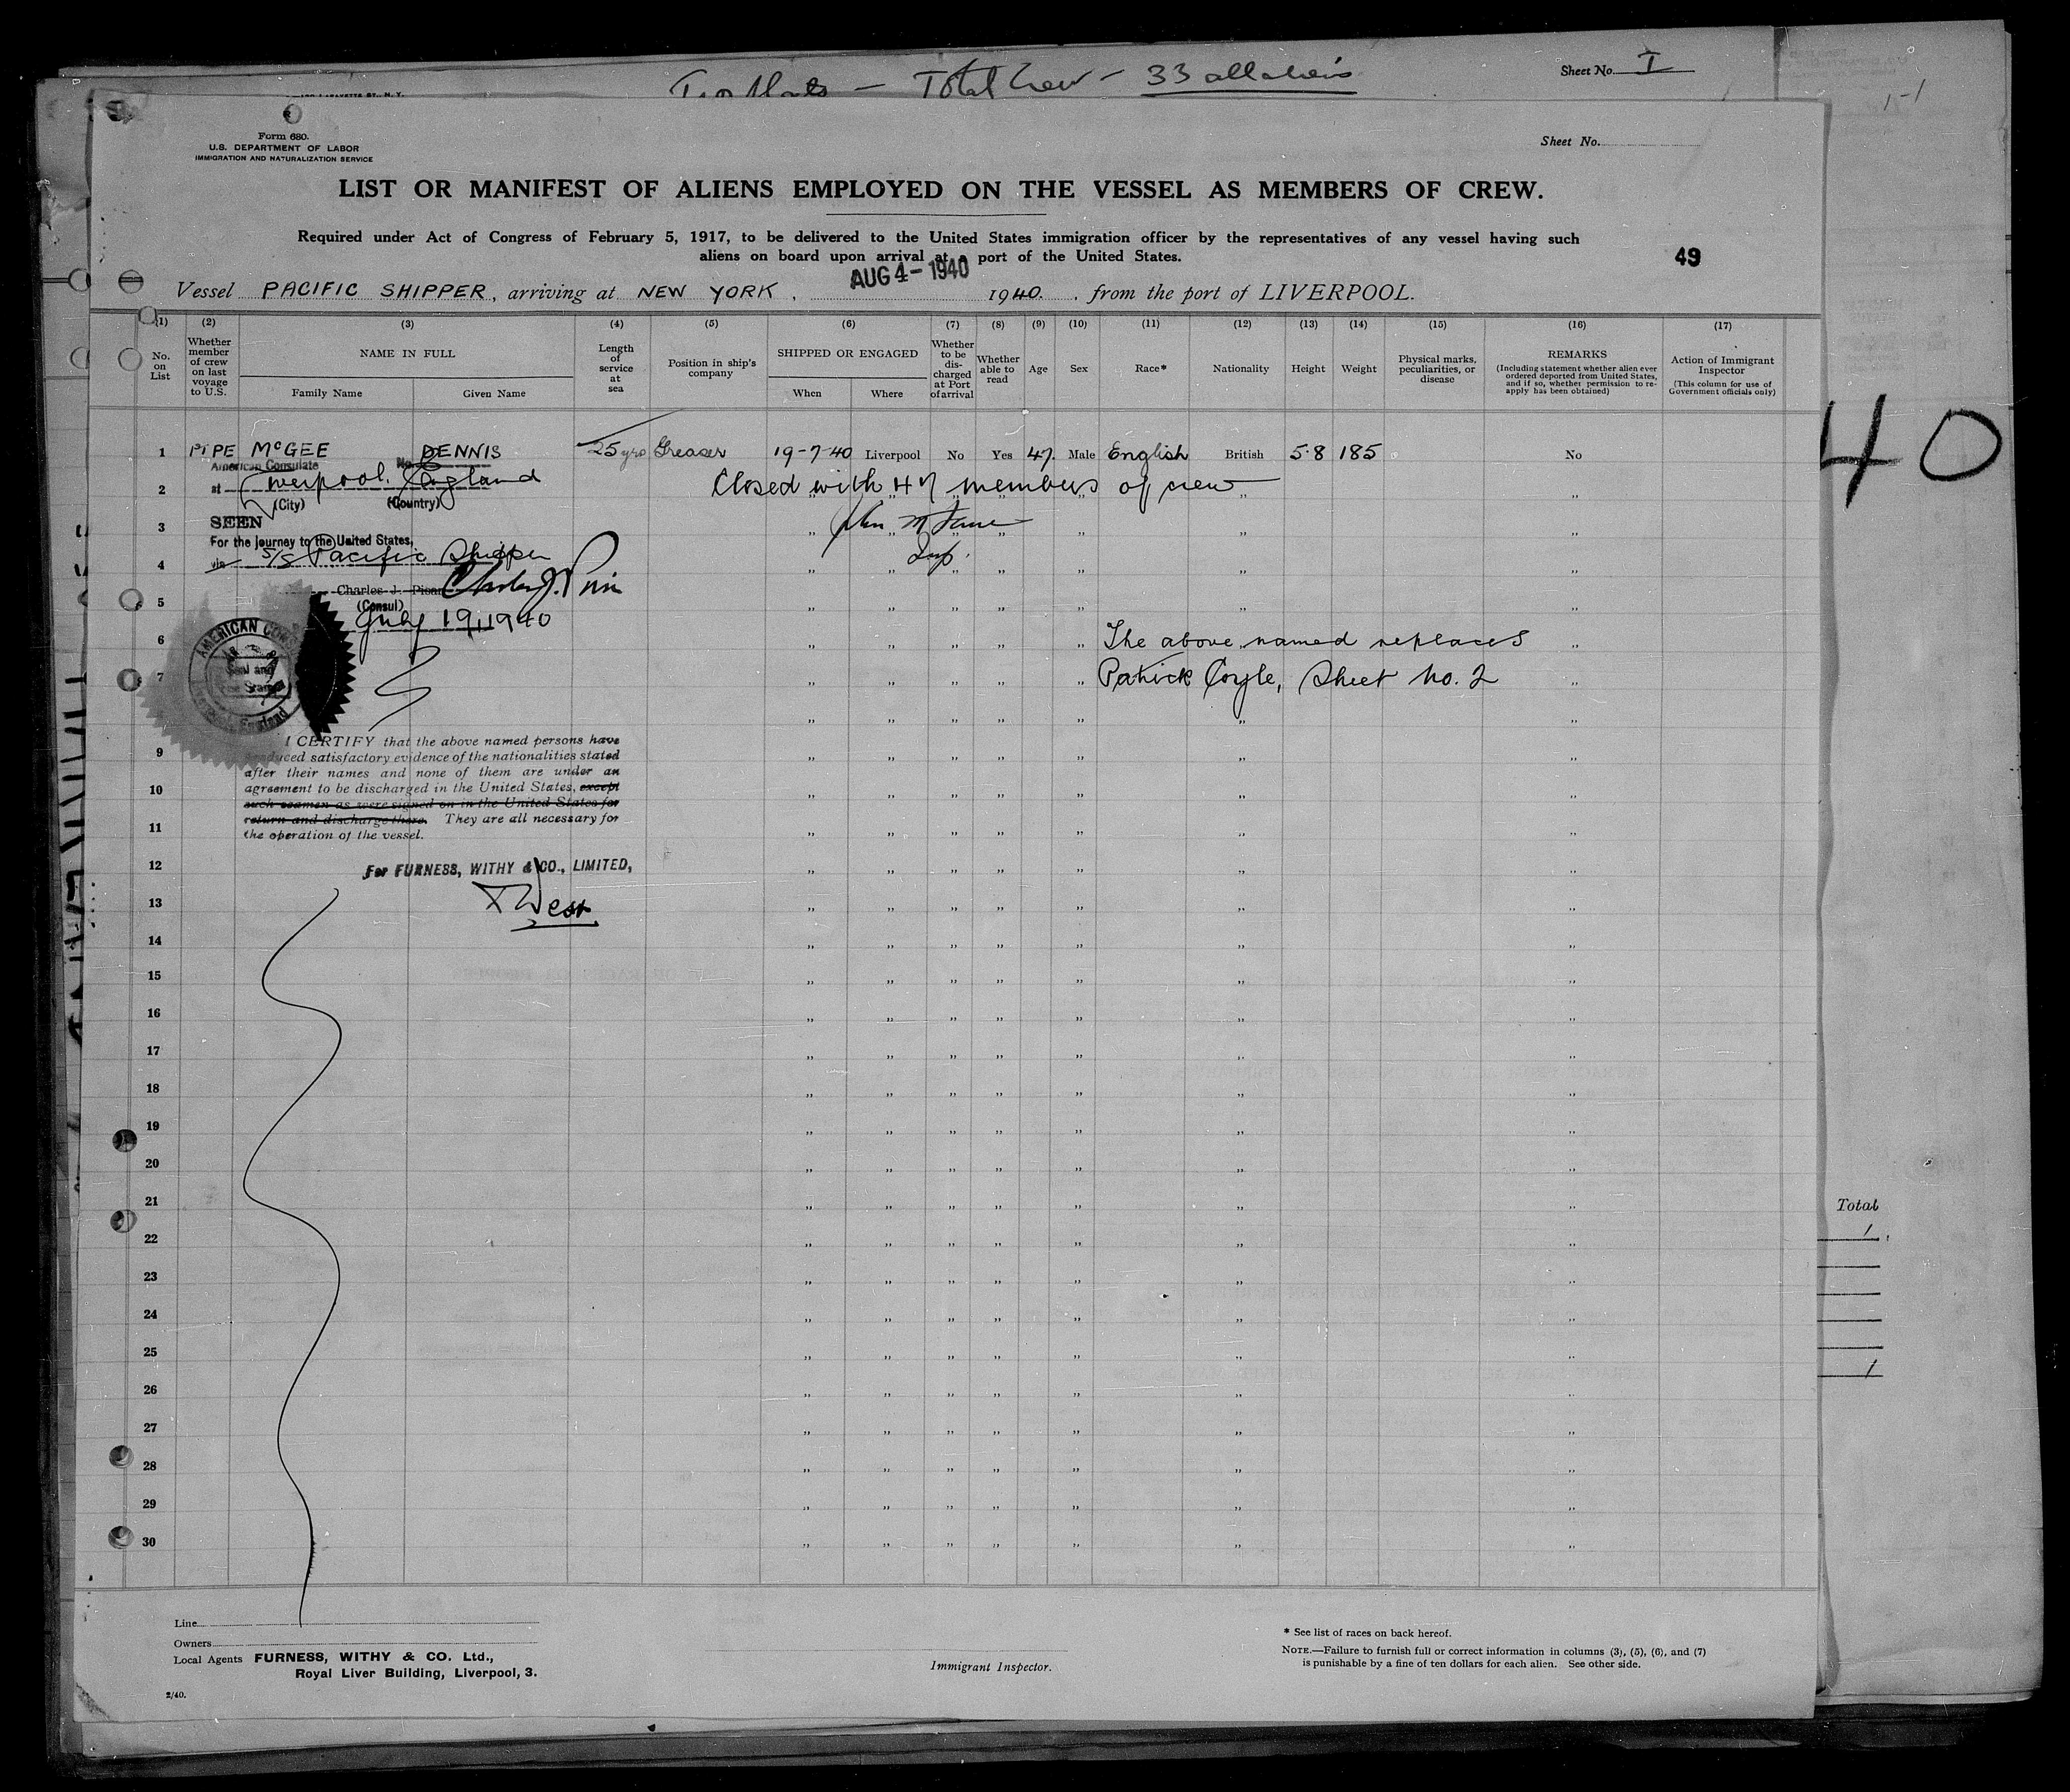 Total Crew - 33 all aliens
Sheet No. I
Form 680.
U.S. DEPARTMENT OF LABOR
IMMIGRATION AND NATURALIZATION SERVICE
Sheet No.
LIST OR MANIFEST OF ALIENS EMPLOYED ON THE VESSEL AS MEMBERS OF CREW.
Required under Act of Congress of February 5, 1917, to be delivered to the United States immigration officer by the representatives of any vessel having such
aliens on board upon arrival at a port of the United States.
49
AUG 4 - 1940
Vessel PACIFIC SHIPPER, arriving at NEW YORK, 1940, from the port of LIVERPOOL.
(1) (2) (3) (4) (5) (6) (7) (8) (9) (10) (11) (12) (13) (14) (15) (16) (17)
No. on List
Whether member of crew on last voyage to U.S.
NAME IN FULL
Family Name
Given Name
Length of service at sea
Position in ship's company
SHIPPED OR ENGAGED
When
Where
Whether to be discharged at Port of arrival
Whether able to read
Age
Sex
Race*
Nationality
Height
Weight
Physical marks, peculiarities, or disease
REMARKS
(Including statement whether alien ever ordered deported from United States, and if so, whether permission to re-apply has been obtained)
Action of Immigrant Inspector
(This column for use of Government officials only)
1 PPE McGEE DENNIS 25 yrs Greaser 19-7-40 Liverpool No Yes 47. Male English British 5·8 185 No
American Consulate No.
2 at Liverpool. England
Closed with 47 members of crew
(City) (Country)
3 SEEN
For the journey to the United States,
Insp.
4 via S/S Pacific Shipper
Charles J. Pisar
5 (Consul)
July 19, 1940
6 The above named replaces
7 Patrick Coyle, Sheet No. 2
AMERICAN
England
I CERTIFY that the above named persons have
9 produced satisfactory evidence of the nationalities stated
after their names and none of them are under an
10 agreement to be discharged in the United States, except
such seamen as were signed on in the United States for
return and discharge there. They are all necessary for
11 the operation of the vessel.
12 For FURNESS, WITHY & CO., LIMITED,
West
13
14
15
16
17
18
19
20
21
22
23
24
25
26
27
28
29
30
40
Total
1
1
Line
Owners
Local Agents FURNESS, WITHY & CO. Ltd.,
Royal Liver Building, Liverpool, 3.
2/40.
Immigrant Inspector.
* See list of races on back hereof.
NOTE.—Failure to furnish full or correct information in columns (3), (5), (6), and (7)
is punishable by a fine of ten dollars for each alien. See other side.